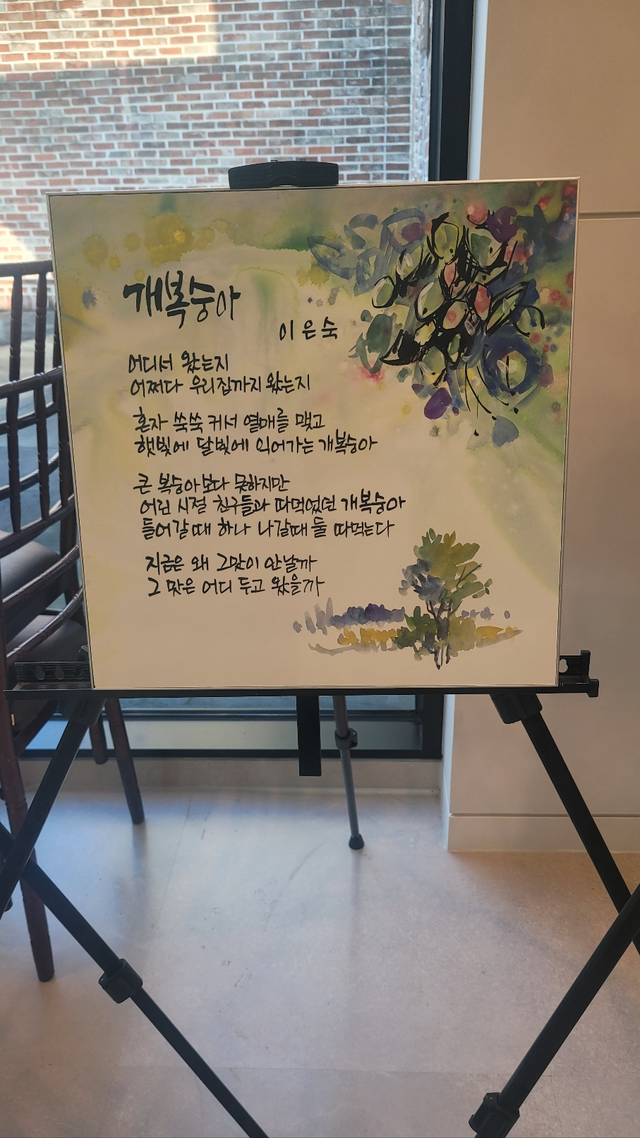 개복숭아
이은숙
어디서 왔는지
어쩌다 우리집까지 왔는지
혼자 쑥쑥 커서 열매를 맺고
햇빛에 달빛에 익어가는 개복숭아
큰 복숭아보다 못하지만
어린 시절 친구들과 따먹었던 개복숭아
들어갈때 하나 나갈때 둘 따먹는다
지금은 왜 그맛이 안날까
그 맛은 어디 두고 왔을까